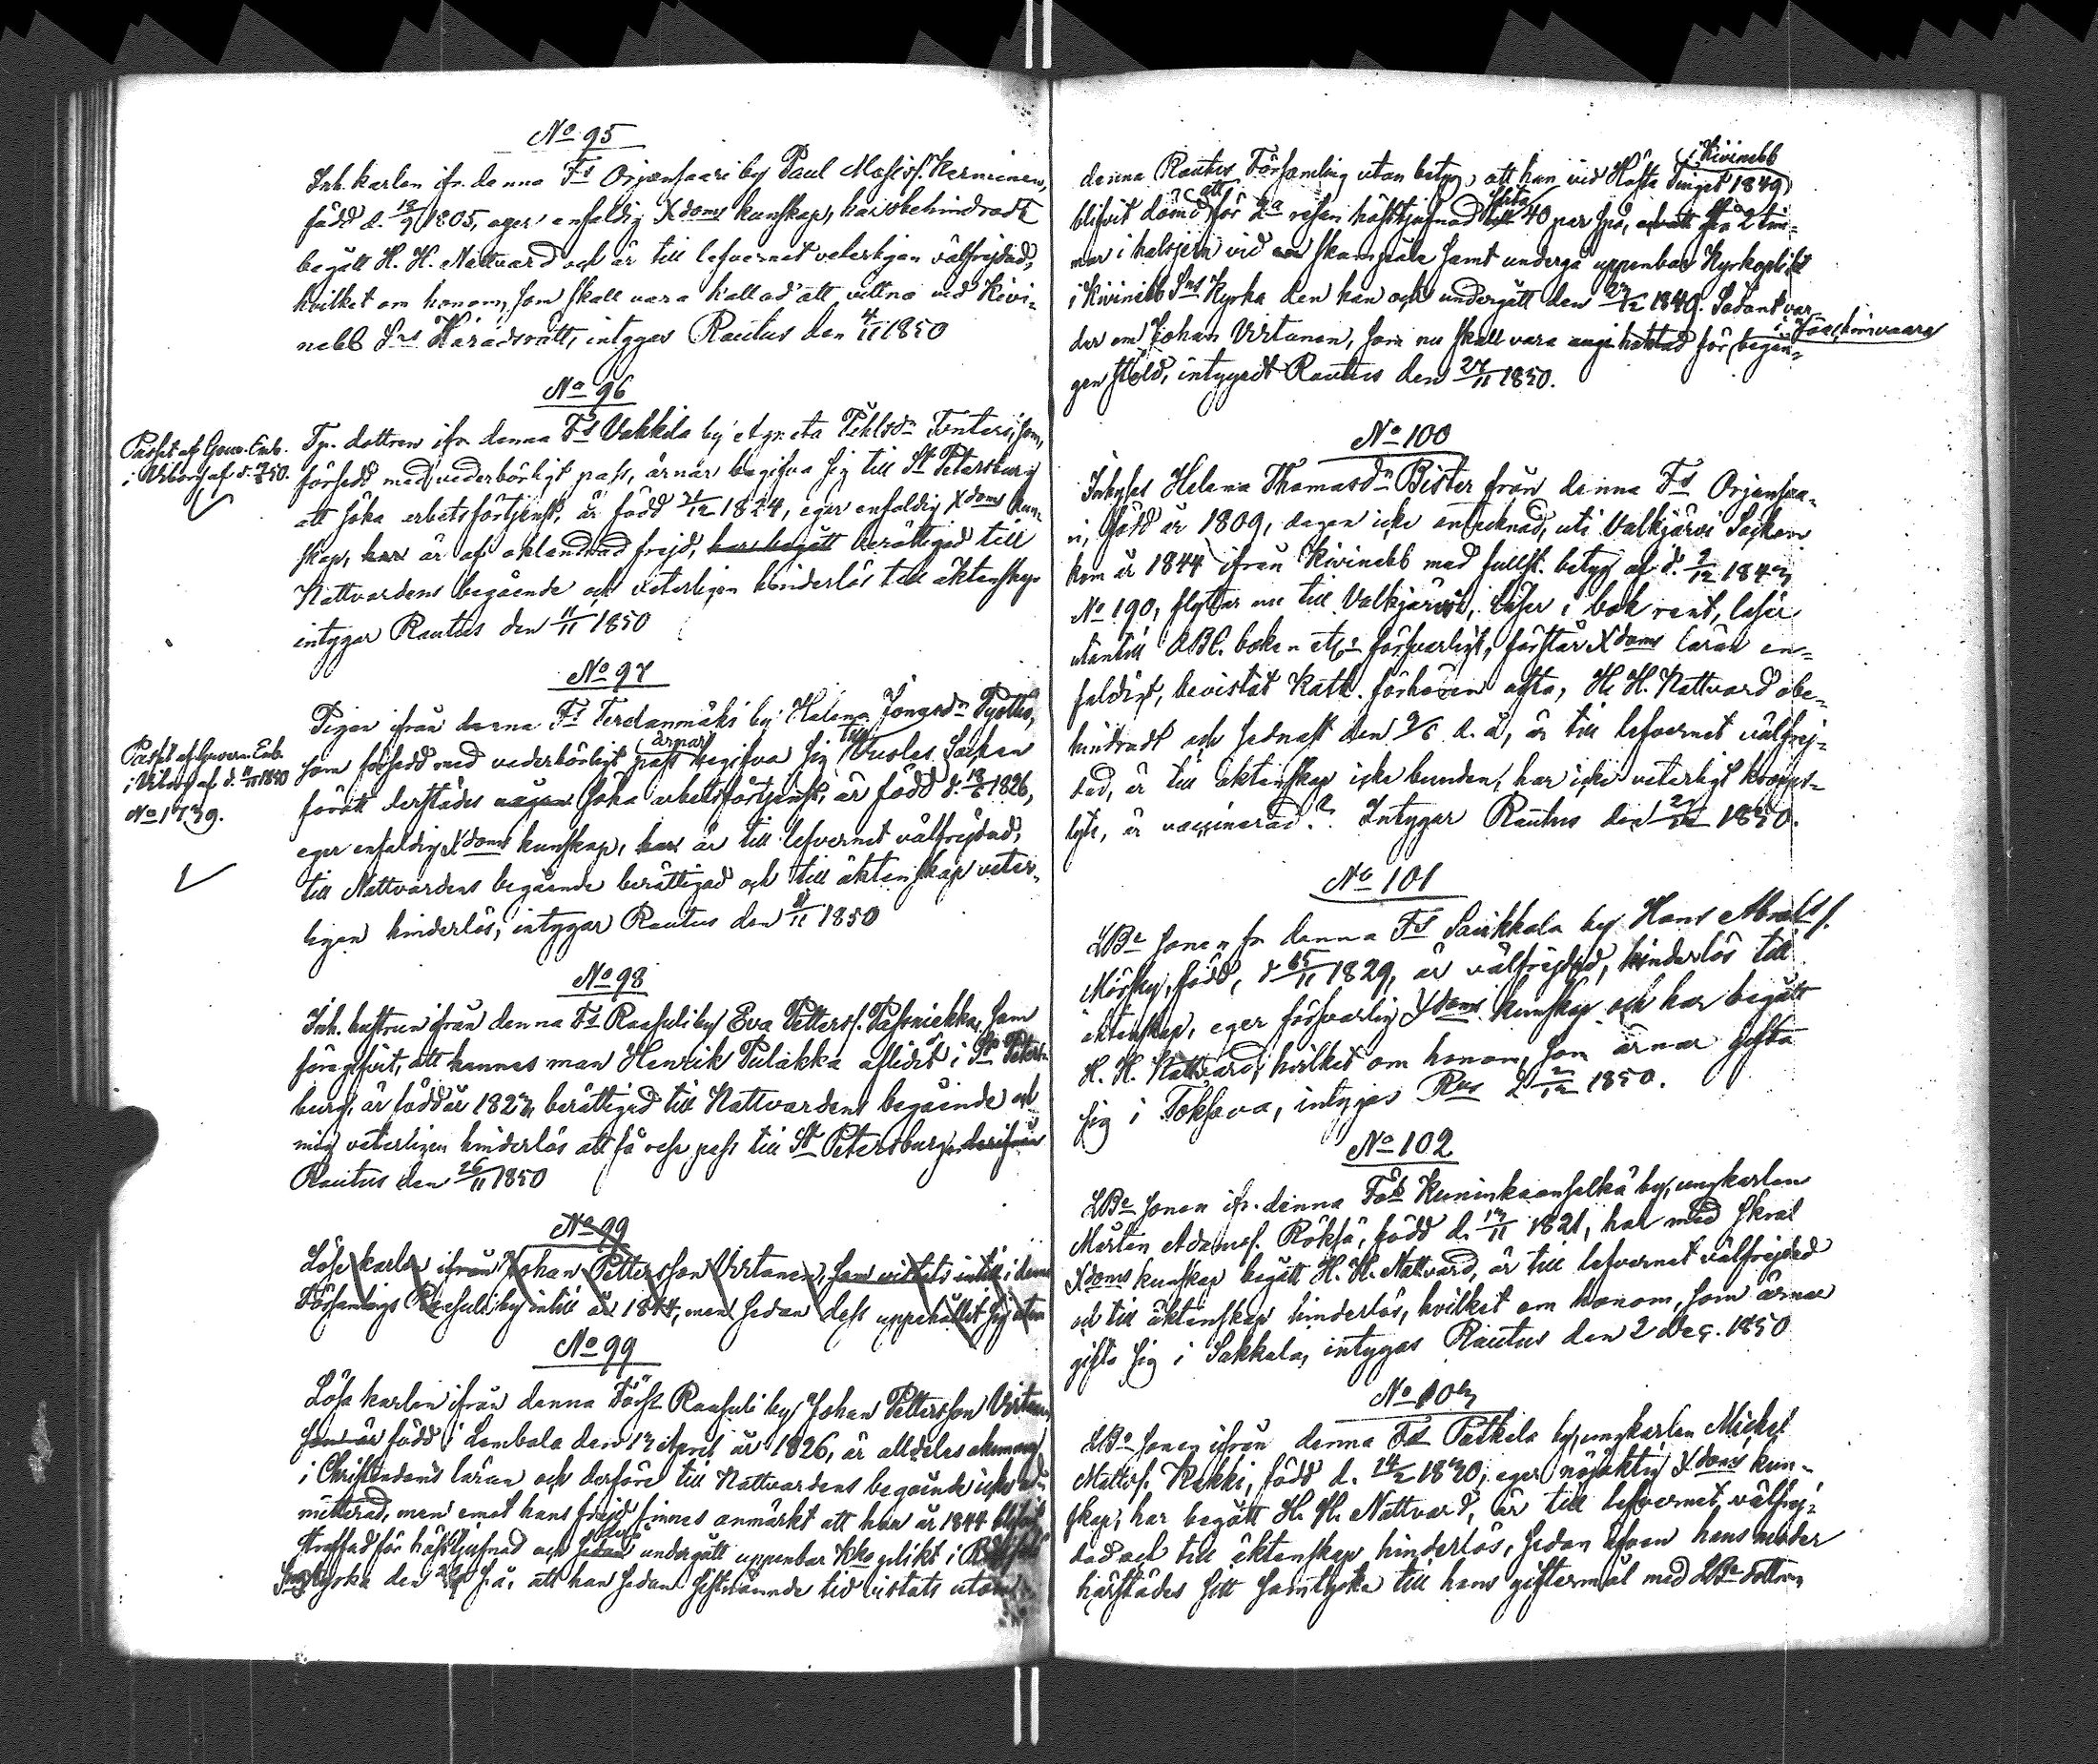 No 95
Inh. karlen ifr. denna Fs Orjansaari by Paul Mathss. Karminen,
född d. 18/9 1805, eger enfaldig Xdoms kunskap, har obehindradt
begått H. H. Nattvard och är till lefvernet veterligen välfrejdad,
hvilket om honom, som skall vara kallad att vittna vid Kivi-
nebb Sns Häradsrätt, intygas Rautus den 4/11 1850
No 96
Passet af Gouv. Emb.
i Wiborg af d. 50.
Tp. dottren ifr. denna Fs Vakkila by Agneta Pehlsdr Tonteri, som,
försedd med vederbörligt pass, ärnar begifva sig till St Petersburg
att söka arbetsförtjenst, är född 21/12 1824, eger enfaldig Xdoms kun-
skap, har är af oklandrad frejd, har begått berättigad till
Nattvardens begående och veterligen hinderlös till äktenskap
intygar Rautus den 11/11 1850
No 97
Passet af Guvern. Emb.
i Wiborg af d. 1850
No 1739.
Pigan ifrån denna Fs Terdanmäki by Helena Jonasdr Pyöttiö,
som försedd med vederbörligt pass ärnar begifva sig till Vuoles Socken
förått derstädes någon söka arbetsförtjenst, är född d. 18/6 1826,
eger enfaldig Xdoms kunskap, har är till lefvernet välfrejdad,
till Nattvardens begående berättigad och till äktenskap veter-
ligen hinderlös, intygar Rautus den 11/11 1850
No 98
Inh. hustrun ifrån denna Fs Raasuli by Eva Petterss. Passniekka, som
föregifvit, att hennes man Henrik Pulakka aflidit i St Peters-
burg, är född år 1823, berättigad till Nattvardens begående och
mig veterligen hinderlös att få resepass till St Petersburg, derifrån
Rautus den 26/11 1850
No 99
Löse karlen ifrån Johan Pettersson Virtanen, som vistats intill i denna
Församlings Raasuli by intill år 1844, men sedan dess uppehållit sig utom
No 99
Löse karlen ifrån denna Förs. Raasuli by Johan Pettersson Virtanen,
som är född i Lembala den 13 April år 1826, är alldeles okunnig
i Christendoms läran och derföre till Nattvardens begående icke ad-
mitterad, men emot hans frejd finnes anmärkt att han år 1844 blifvit
straffad för hästtjufnad och undergått uppenbar Kkoplikt i
Sns kyrka den s. å. att han sedan sistnämnde tid vistats utom
denna Rautus Församling utan betyg, att han vid Hösta Tinget 1849 i Kivinebb
blifvit dömd att för 2a resan häststjufnad slita 40 par spö, och att stå 2 tim-
mar i halsjern vid en skampåle samt undergå uppenbar Kyrkoplikt
i Kivinebb Sns Kyrka den han och undergått den 23/12 1849. Sådant var-
der om Johan Virtanen, som nu skall vara häktad för i Jääskinvaara begån-
gen stöld, intygadt Rautus den 27/11 1850.
No 100
Inhyses Helena Thomasdr Bister från denna Fs Orjansaa-
ri, född år 1809, dagen icke antecknad, uti Valkjärvi Socken
kom år 1844 ifrån Kivinebb med fullst. betyg af d. 9/12 1843
No 190, flyttar nu till Valkjärvi, läser i bok rent, läser
utantill ABC. boken etc. försvarligt, förstår Xdoms läran en-
faldigt, bevistat Kath. förhören ofta, H. H. Nattvard obe-
hindradt och sednast den 9/6 d. å, är till lefvernet välfrej-
dad, är till äktenskap icke bunden, har icke veterligt kropps-
lyte, är vaccinerad.? Intygar Rautus den 1850.
No 101
LBe sonen fr denna Fs Sairkkala by Hans Abrahss.
Mörsky, född, d 15/11 1829, är välfrejdad, hinderlös till
äktenskap, eger försvarlig Xdoms kunskap och har begått
H. H. Nattvard, hvilket om honom, som ärnar gifta
sig i Toksova, intygas Rus d 2/12 1850.
No 102
LBe sonen ifr. denna Förs Kuninkaanselkä by, ungkarlen
Mårten Adamss. Röksä, född d. 13/11 1821, har med skral
Xdoms kunskap begått H. H. Nattvard, är till lefvernet välfrejdad
och till äktenskap hinderlös, hvilket om honom, som ärnar
gifta sig i Sakkala, intygas Rautus den 2 Dec. 1850
No 103
LBe sonen ifrån denna Fs Potkela by, ungkarlen Michel
Mattss. Kekki, född d. 14/2 1830, eger nöjaktig Xdoms kun-
skap, har begått H. H. Nattvard, är till lefvernet välfrej-
dad och till äktenskap hinderlös, sedan äfven hans moder
härstädes sitt samtycke till hans giftermål med LBe dottren